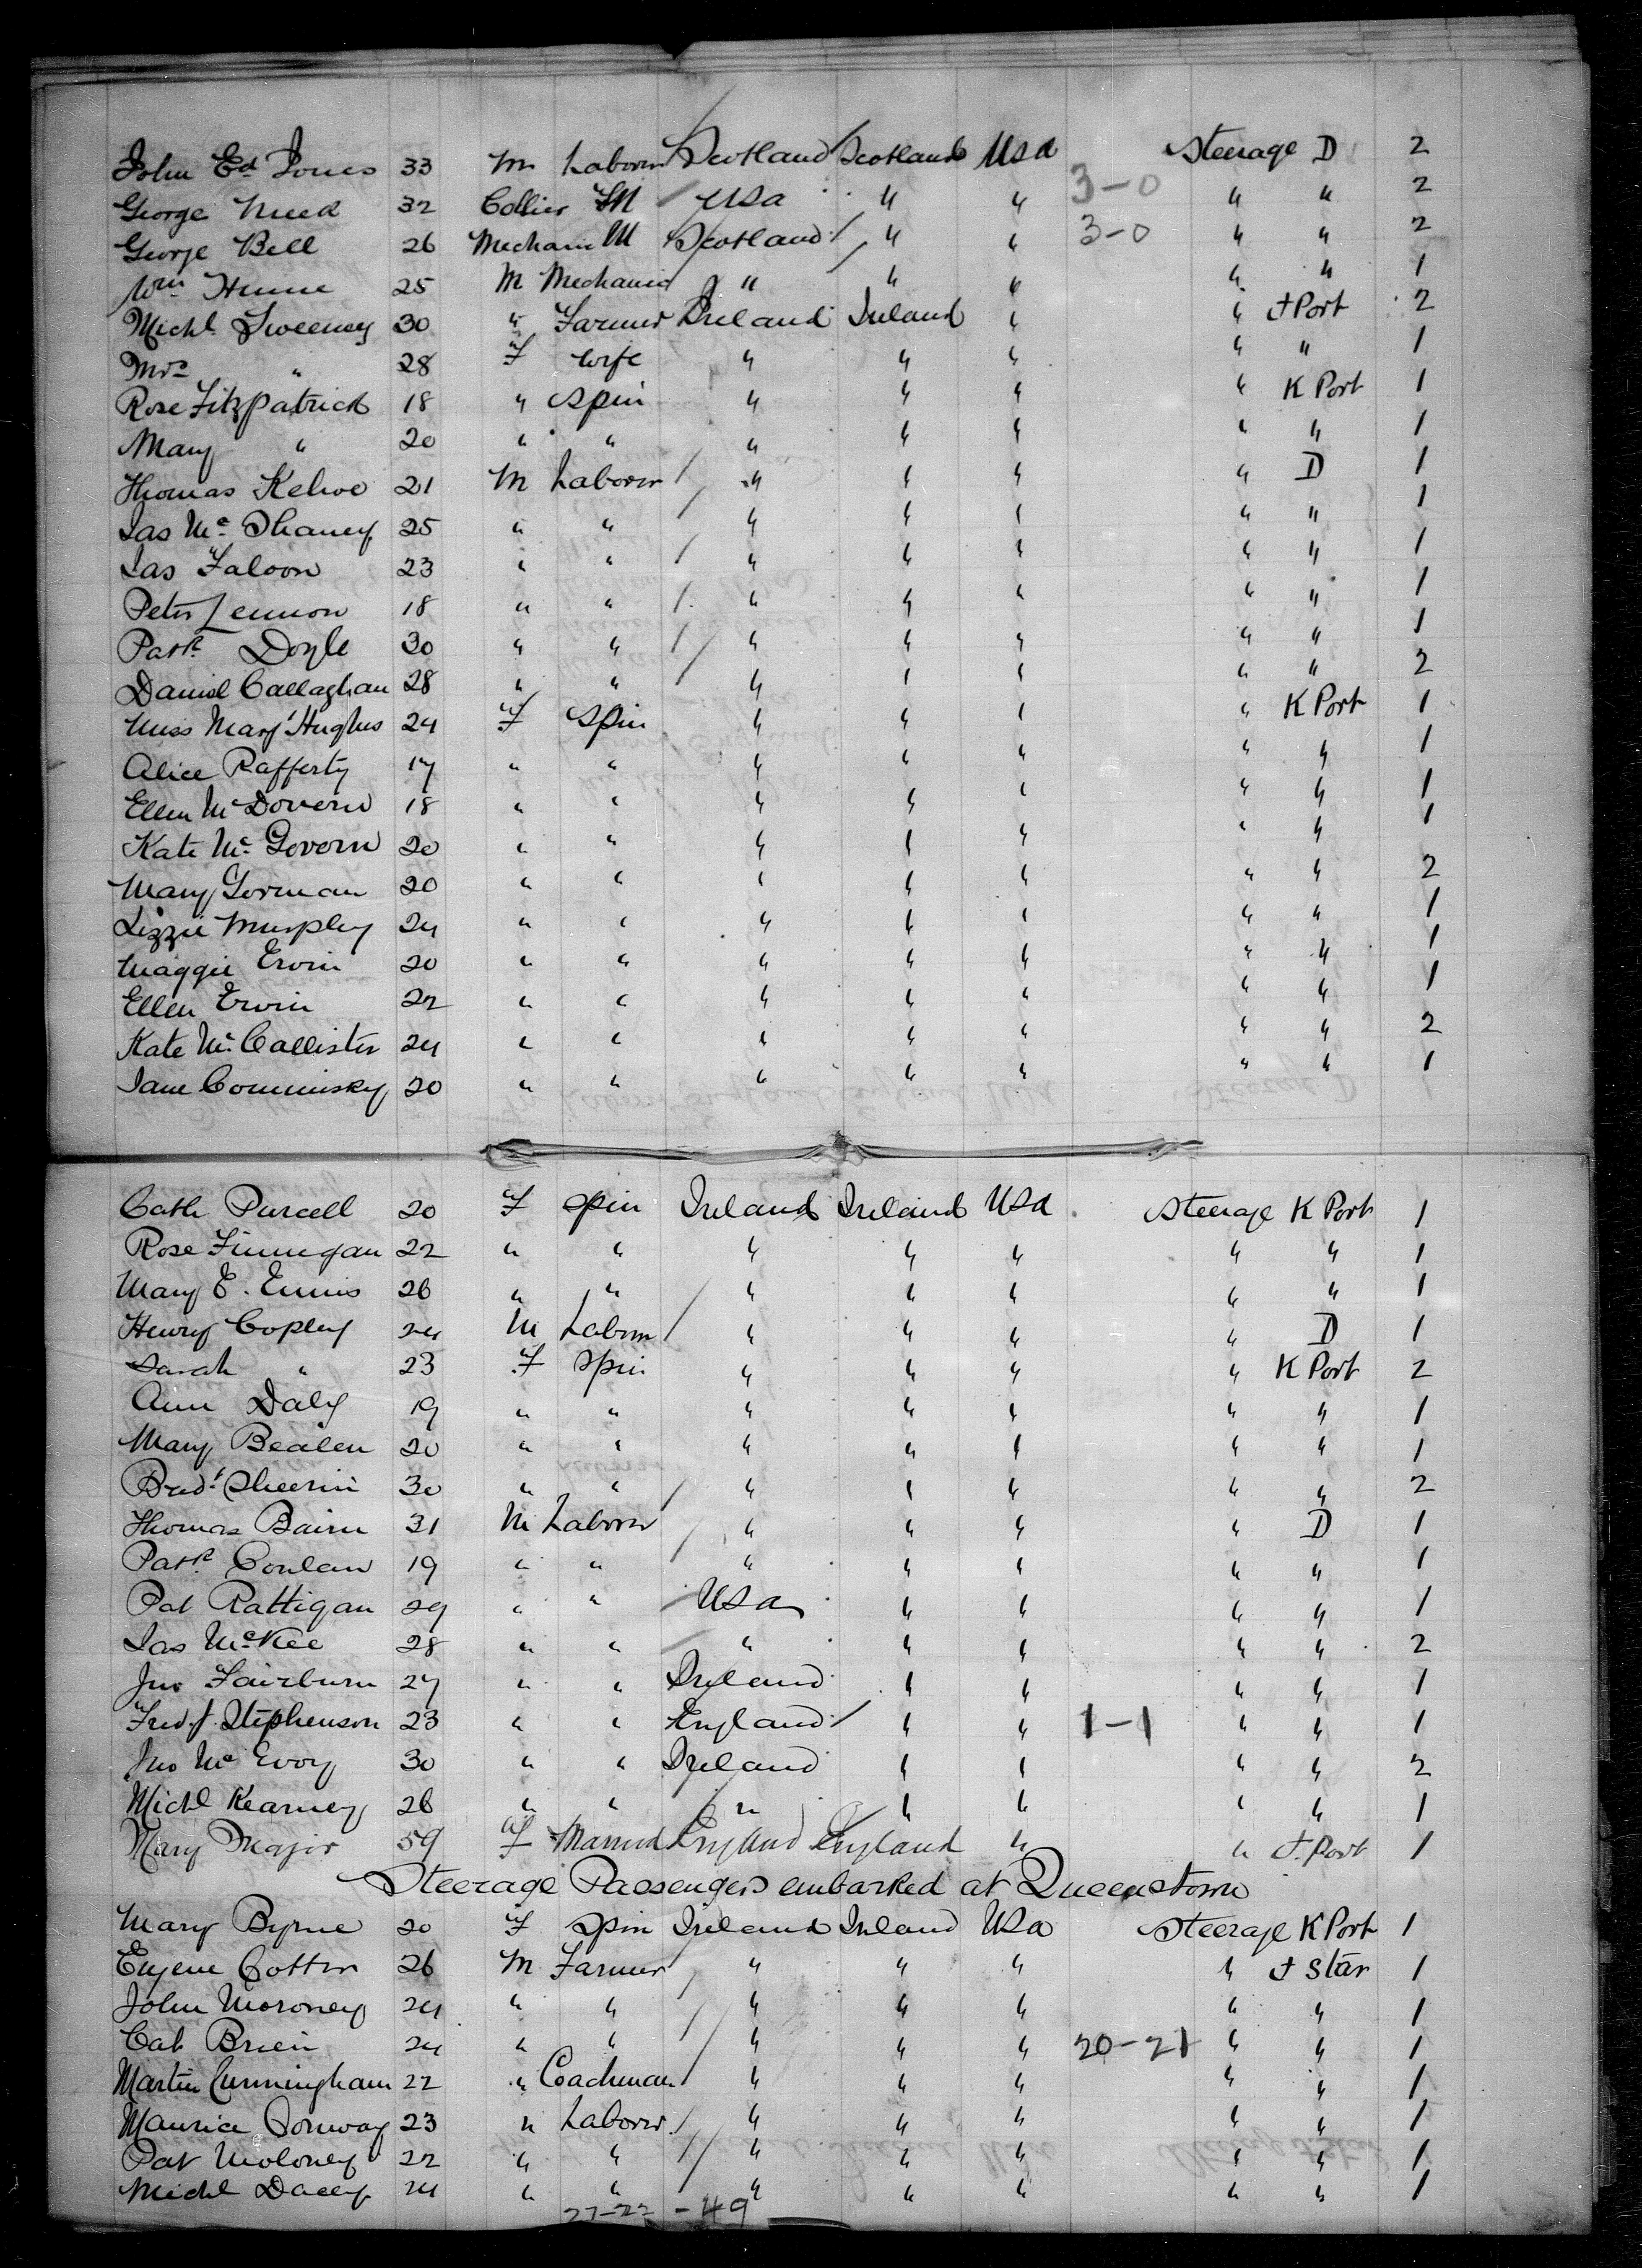 John Ed Jones 33 M Laborer Scotland Scotland USA Steerage D 2
George Meed 32 Collier M USA " " 3-0 " " 2
George Bell 26 Mechanic M Scotland " " 3-0 " " 2
Wm Hume 25 M Mechanic " " " " " 1
Michl Sweeney 30 " Farmer Ireland Ireland " " J Port 2
Mrs " 28 F wife " " " " " 1
Rose Fitzpatrick 18 " Spin " " " " K Port 1
Mary " 20 " " " " " " " 1
Thomas Kehoe 21 M Laborer " " " " D 1
Jas Mc Shaney 25 " " " " " " " 1
Jas Faloon 23 " " " " " " " 1
Peter Lennon 18 " " " " " " " 1
Patk Doyle 30 " " " " " " " 1
Daniel Callaghan 28 " " " " " " " 2
Miss Mary Hughes 24 F Spin " " " " K Port 1
Alice Rafferty 17 " " " " " " " 1
Ellen McDovern 18 " " " " " " " 1
Kate Mc Govern 20 " " " " " " " 1
Mary Gorman 20 " " " " " " " 2
Lizzie Murphy 24 " " " " " " " 1
Maggie Ervin 20 " " " " " " " 1
Ellen Ervin 22 " " " " " " " 1
Kate McCallister 24 " " " " " " " 2
Jane Comminsky 20 " " " " " " " 1
Cath Purcell 20 F Spin Ireland Ireland USA Steerage K Port 1
Rose Finnegan 22 " " " " " " " 1
Mary E. Ennis 26 " " " " " " " 1
Henry Copley 24 M Laborer " " " " D 1
Sarah " 23 F Spin " " " " K Port 2
Ann Daly 19 " " " " " " " 1
Mary Bealen 20 " " " " " " " 1
Brid Sheerin 30 " " " " " " " 2
Thomas Bairn 31 M Laborer " " " " D 1
Patk Conlan 19 " " " " " " " 1
Pat Rattigan 29 " " USA " " " " 1
Jas McKee 28 " " " " " " " 2
Jno Fairburn 27 " " Ireland " " " " 1
Fred. J. Stephenson 23 " " England " " 1-1 " " 1
Jno McEvoy 30 " " Ireland " " " " 2
Michl Kearney 26 " " " " " " " 1
Mary Major 59 F Married England England " " J. Port 1
Steerage Passengers embarked at Queenstown
Mary Byrne 20 F Spin Ireland Ireland USA Steerage K Port 1
Eugene Cotter 26 M Farmer " " " " J Star 1
John Moroney 24 " " " " " " " 1
Cab Brien 24 " " " " " 20-21 " " 1
Martin Cunningham 22 " Coachman " " " " " 1
Maurice Conway 23 " Laborer " " " " " 1
Pat Moloney 22 " " " " " " " 1
Michl Dacey 24 " " " " " " " 1
27-22 - 49